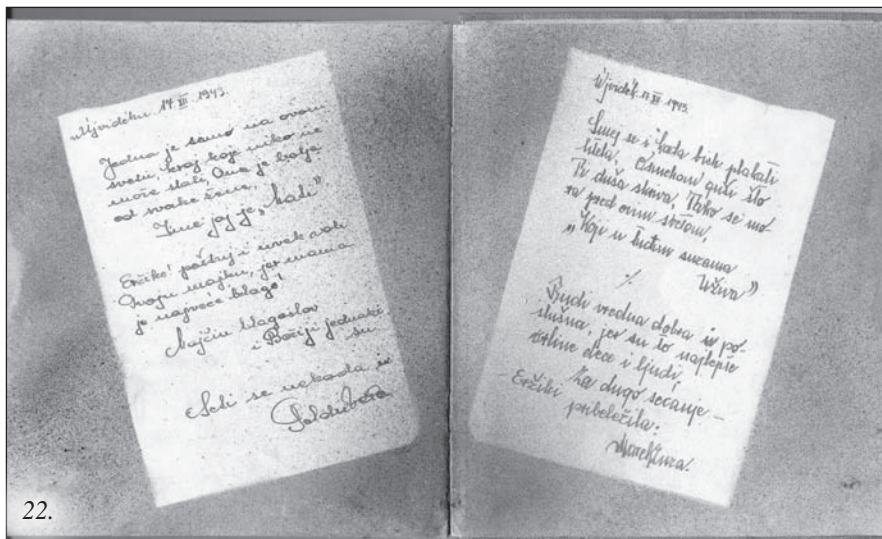 Újvidéku, 17 XII 1943.
Jedna je samo na ovom
svetu, kraj koje niko ne
može stati, Ona je bolja
od svake žene,
Ime joj je, „Mati”
Eržiko! poštuj i uvek voli
Tvoju majku, jer mama
je najveće blago!
Majčin blagoslov
i Božiji jednaki
su
Seti se nekada i
Újvidék. 17 XII 1943.
Smej se i kada bih plakati
htela, Osmehom guši što
Ti duša skriva, Tako se mo-
ra pred ovim svetom,
„Koji u tuđim suzama
Uživa”
·/.
Budi vredna dobra i po-
slušna, jer su to najlepše
vrline dece i ljudi,
Za dugo sećanje –
Eržiki pribeležila:
22.